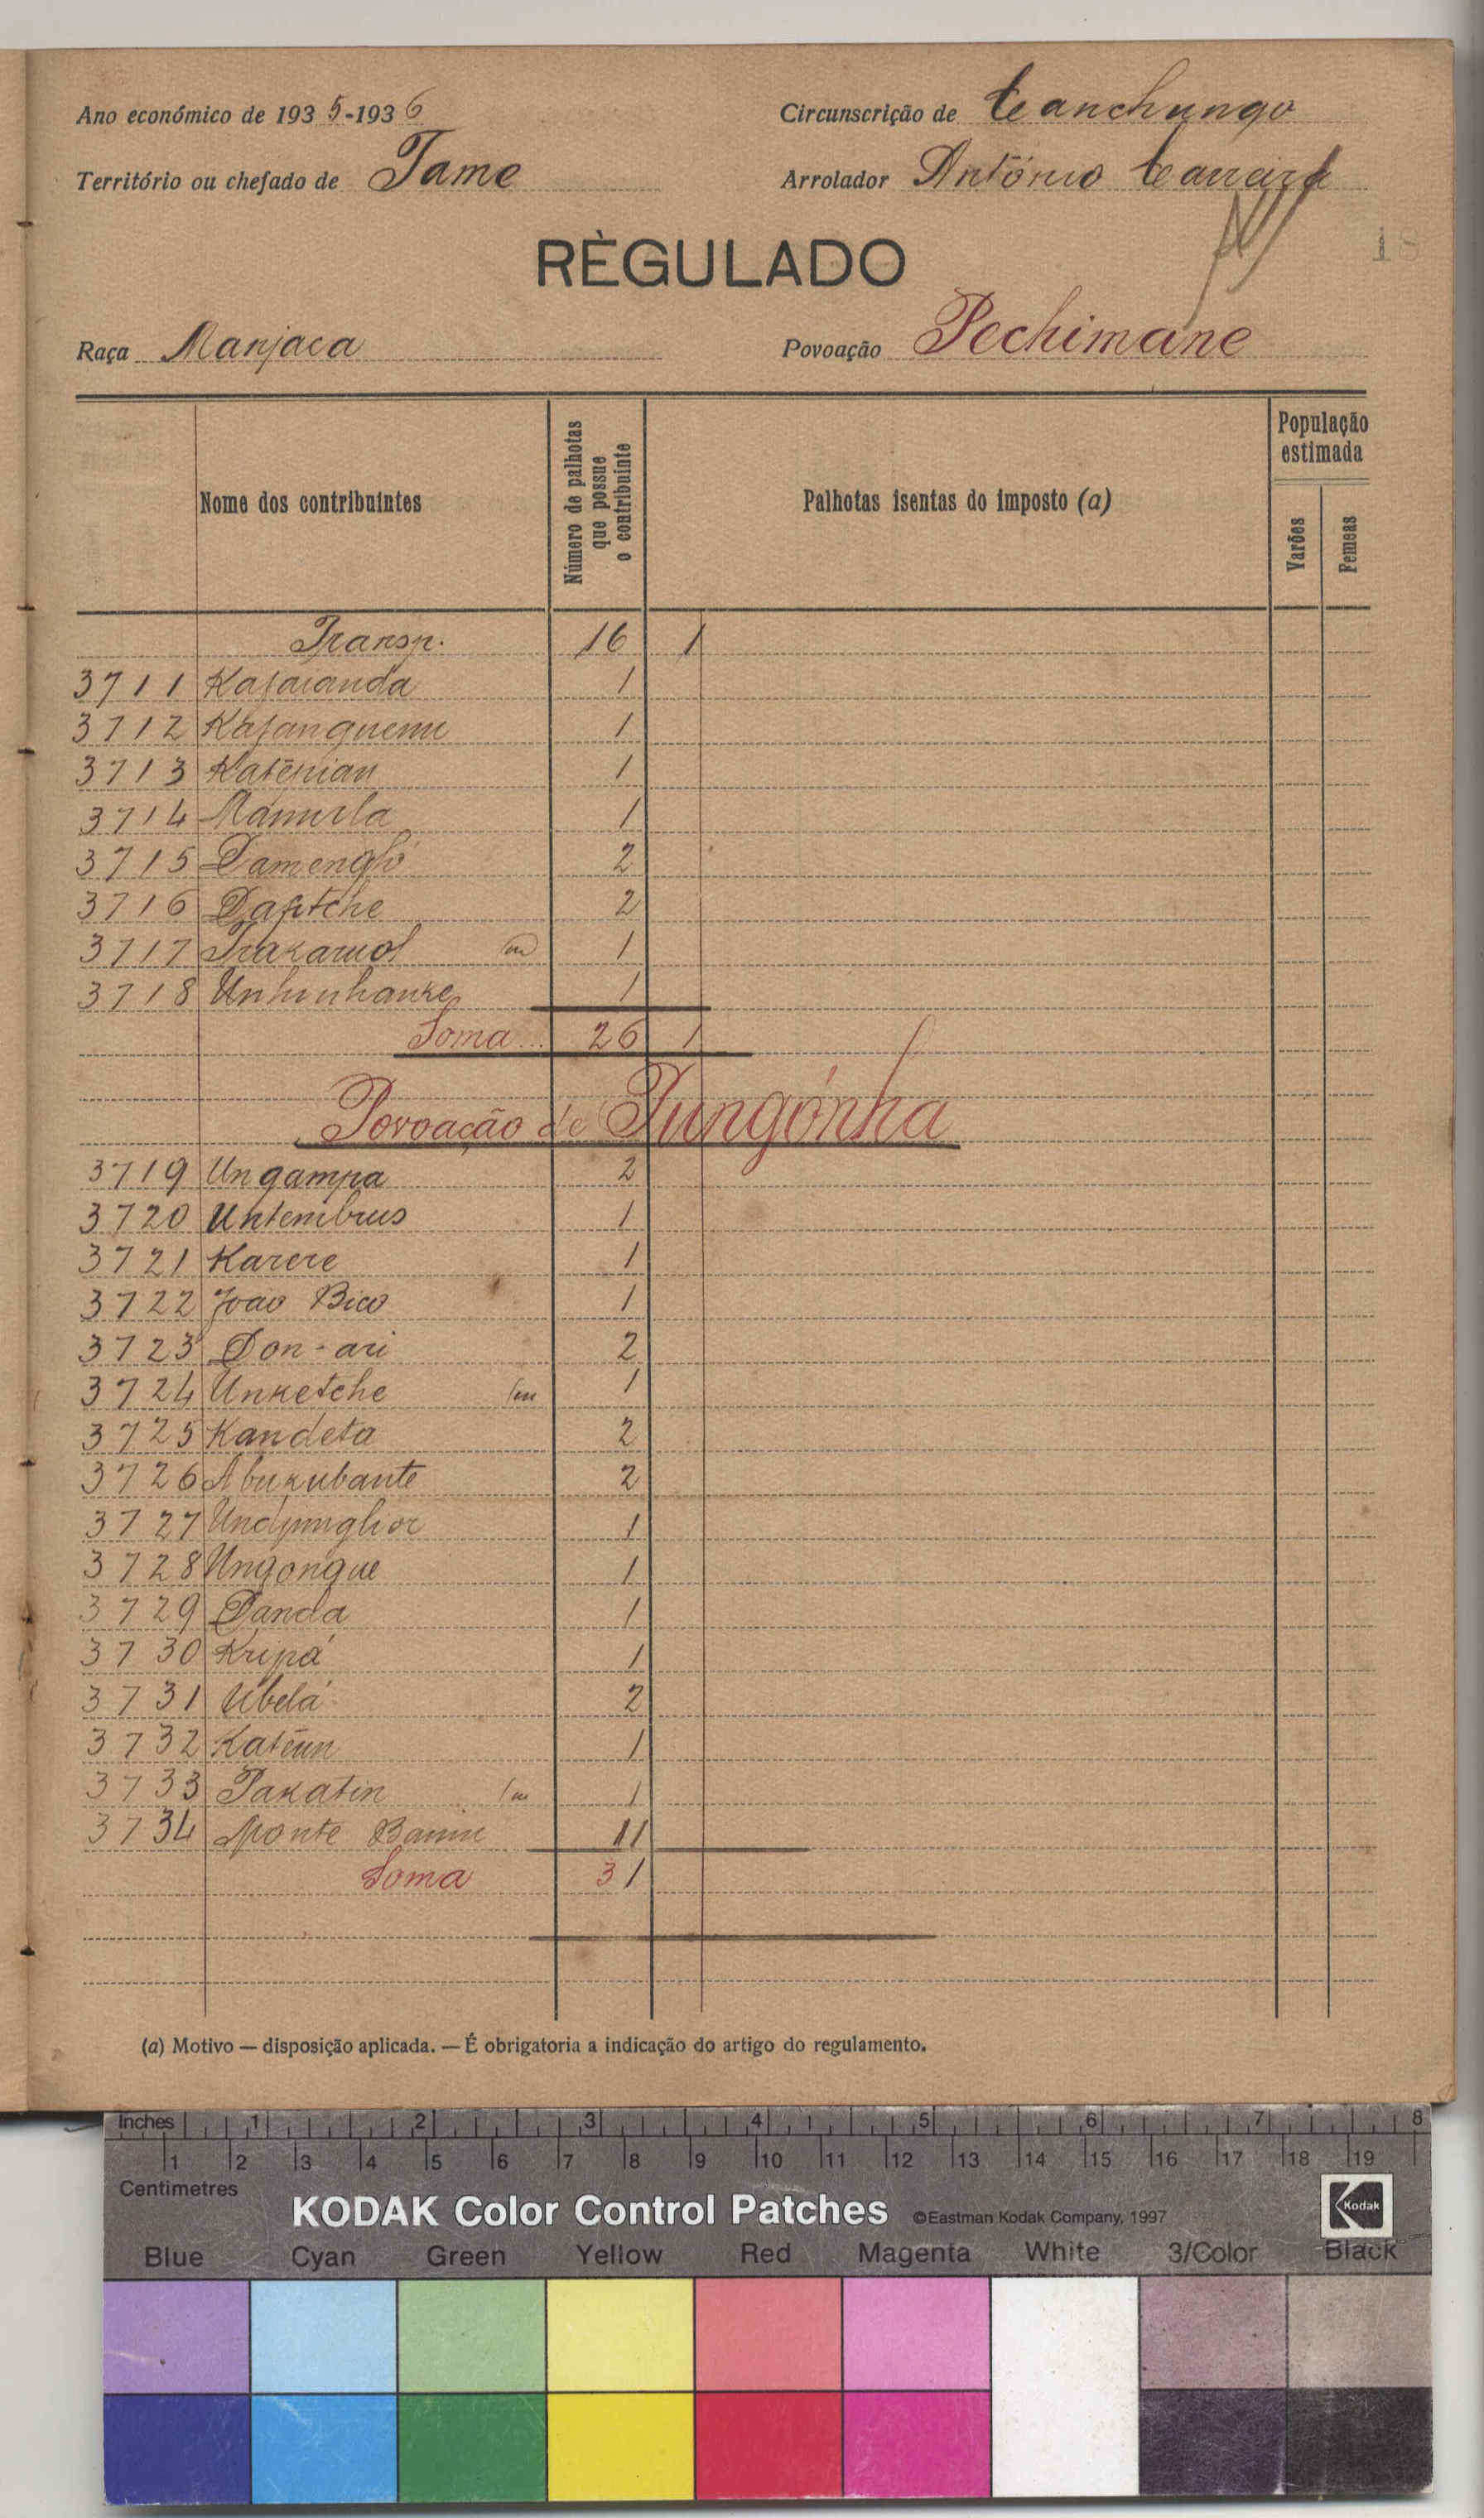 Ano económico de 1935-1936
Circunscrição de Canchungo
Território ou chefado de Tame
Arrolador António Carreira
RÈGULADO
18
Raça Manjaca
Povoação Pechimane
Nome dos contribuintes
Número de palhotas que possue o contribuinte
Palhotas isentas do imposto (a)
População estimada
Varões
Femeas
Transp. 16 1
3711 1
3712 1
3713 Katênian 1
3714 1
3715 2
3716 2
3717 1
3718 1
Soma 26 1
Povoação de Pungónha
3719 Ungampa 2
3720 Untembrus 1
3721 Karere 1
3722 João Bico 1
3723 Don-ari 2
3724 Unketche 1
3725 Kandeta 2
3726 Abukubante 2
3727 1
3728 Ungongue 1
3729 Danda 1
3730 Kripá 1
3731 Ubelá 2
3732 1
3733 Pakatin 1
3734 Monte 11
Soma 31
(a) Motivo — disposição aplicada. — É obrigatoria a indicação do artigo do regulamento.
Inches 1 2 3 4 5 6 7 8
1 2 3 4 5 6 7 8 9 10 11 12 13 14 15 16 17 18 19
Centimetres
KODAK Color Control Patches ©Eastman Kodak Company, 1997 Kodak
Blue Cyan Green Yellow Red Magenta White 3/Color Black